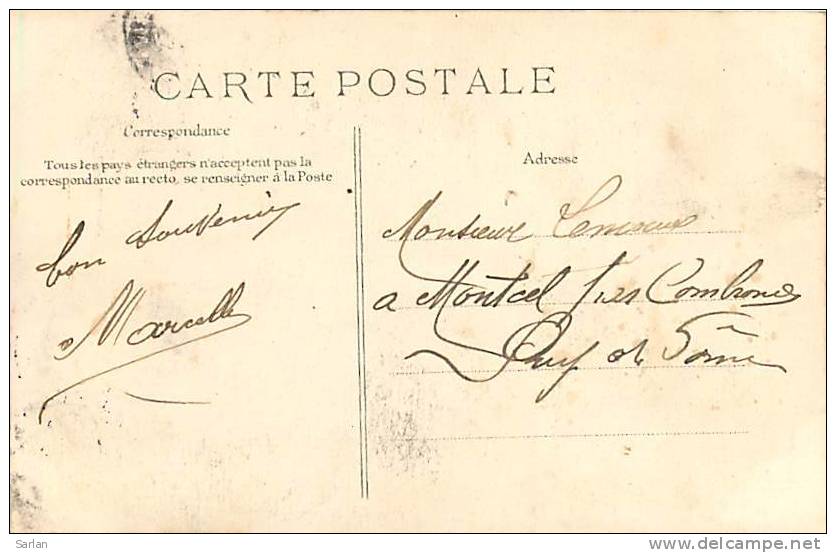 CARTE POSTALE
Correspondance
Tous les pays étrangers n'acceptent pas la
correspondance au recto, se renseigner à la Poste
bon souvenir
Marcelle
Adresse
Monsieur
a Montcel près Combronde
Puy de Dôme
Sarlan
delcampe.net